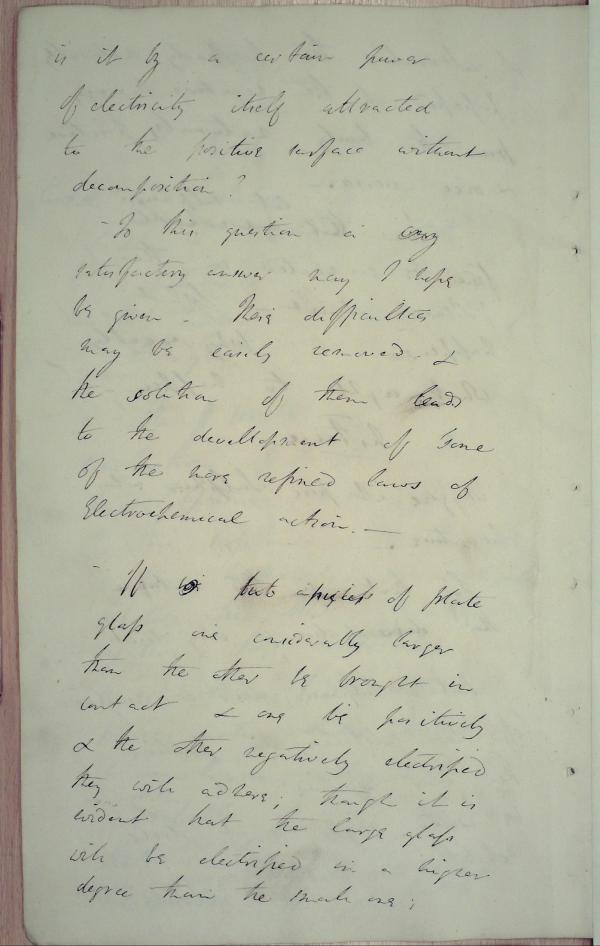 is it by a certain power
of electricity itself attracted
to the positive surface without
decomposition?
- To this question a very
satisfactory answer may I hope
be given. These difficulties
may be easily removed. &
the solution of them leads
to the development of some
of the more refined laws of
Electrochemical action. —
- If two pieces of plate
glass one considerably larger
than the other be brought in
contact & one be positively
& the other negatively electrified
they will adhere; though it is
evident that the large glass
will be electrified in a higher
degree than the small one;